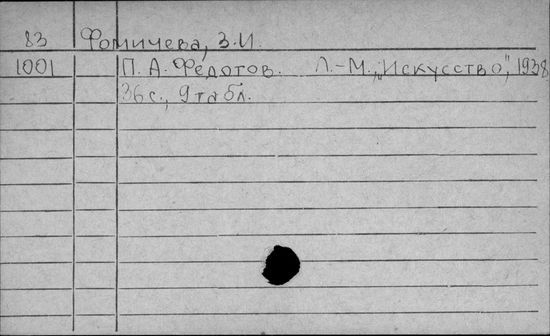 83 Фомичева, З.И.
1001 П. А. Федотов. Л.-М., „Искусство", 1938
36 с., 9 табл.